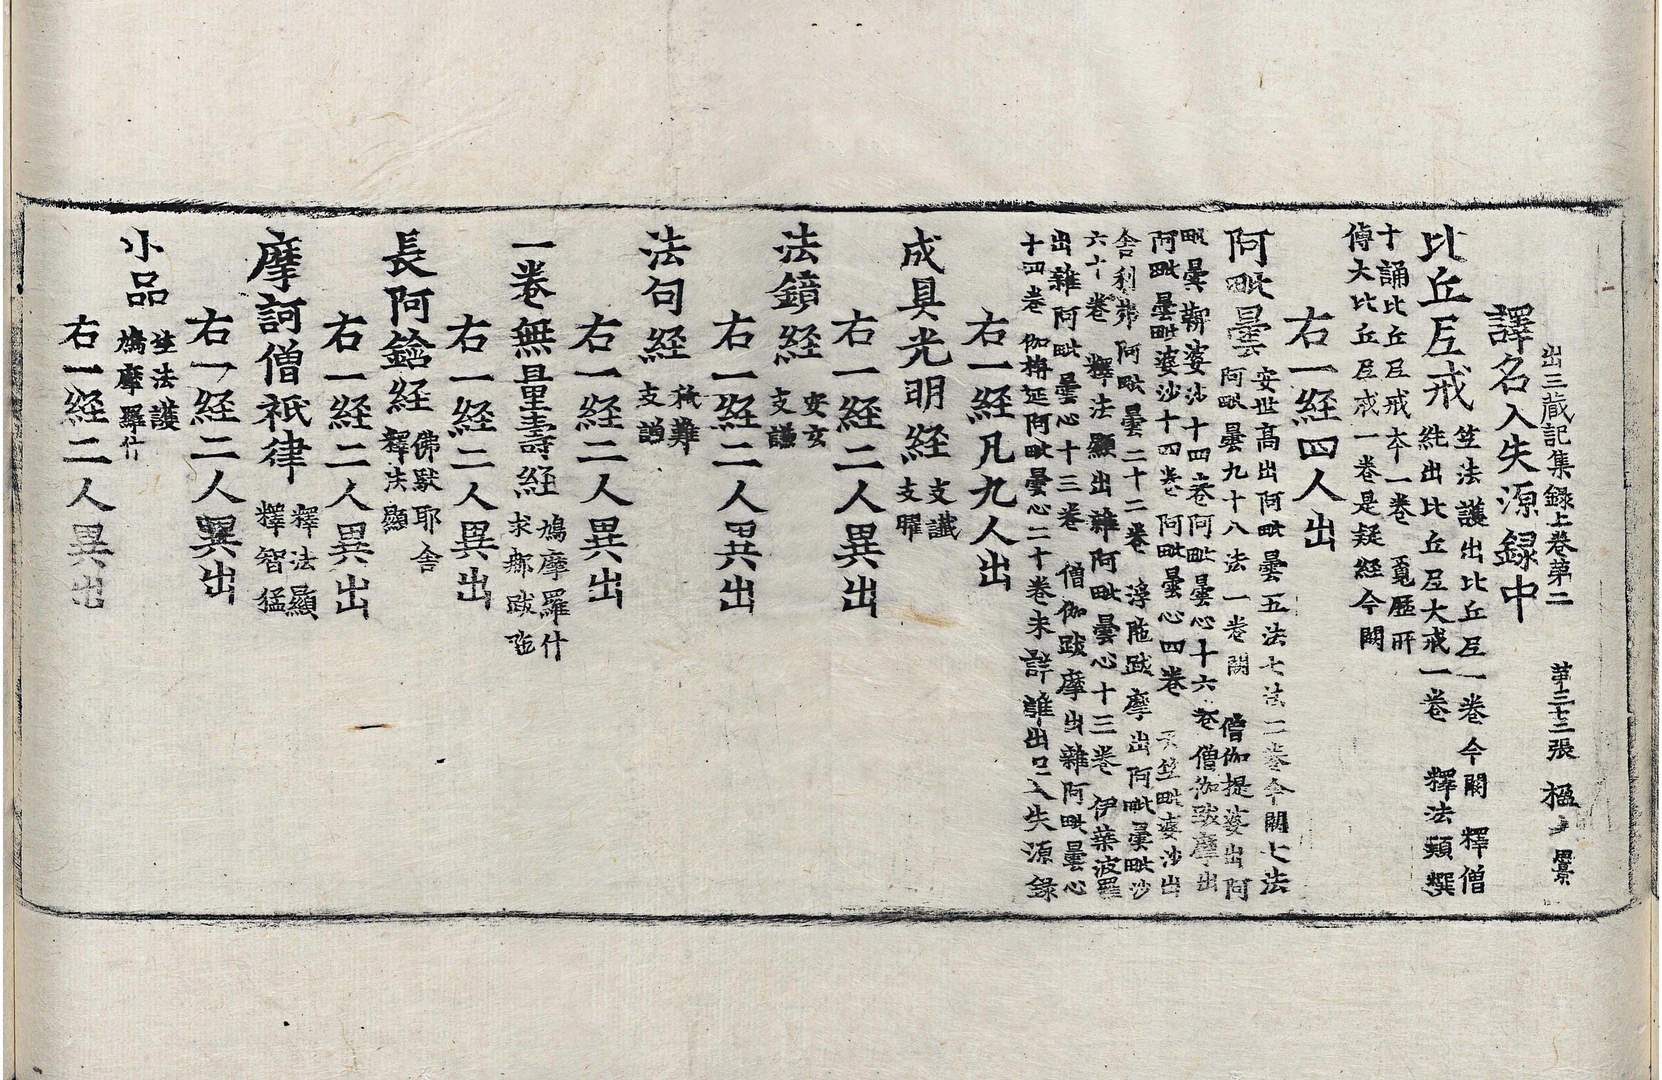 出三藏記集録上卷第二　第三十三張　楹
譯名入失源録中
比丘尼戒　竺法護出比丘尼一卷今闕　釋僧
純出比丘尼大戒一卷　釋法穎撰
十誦比丘尼戒夲一卷　覓歷所
傳大比丘尼戒一卷是疑經今闕
右一經四人出
阿毗曇　安世髙出阿毗曇五法七法二卷今闕七法
阿毗曇九十八法一卷闕　僧伽提婆出阿
毗曇鞞婆沙十四卷阿毗曇心十六卷僧伽跋摩出
阿毗曇毗婆沙十四卷阿毗曇心四卷　天竺毗婆沙出
舍利弗阿毗曇二十二卷　浮陁跋摩出阿毗曇毗沙
六十卷　釋法顯出雜阿毗曇心十三卷　伊葉波羅
出雜阿毗曇心十三卷　僧伽跋摩出雜阿毗曇心
十四卷　伽栴延阿毗曇心二十卷未詳誰出已入失源録
右一經凡九人出
成具光明經　支讖
支曜
右一經二人異出
法鏡經　安玄
支謙
右一經二人異出
法句經　秖難
支謙
右一經二人異出
一卷無量壽經　鳩摩羅什
求那跋陁
右一經二人異出
長阿鋡經　佛馱耶舍
釋法顯
右一經二人異出
摩訶僧祇律　釋法顯
釋智猛
右一經二人異出
小品　竺法護
鳩摩羅什
右一經二人異出